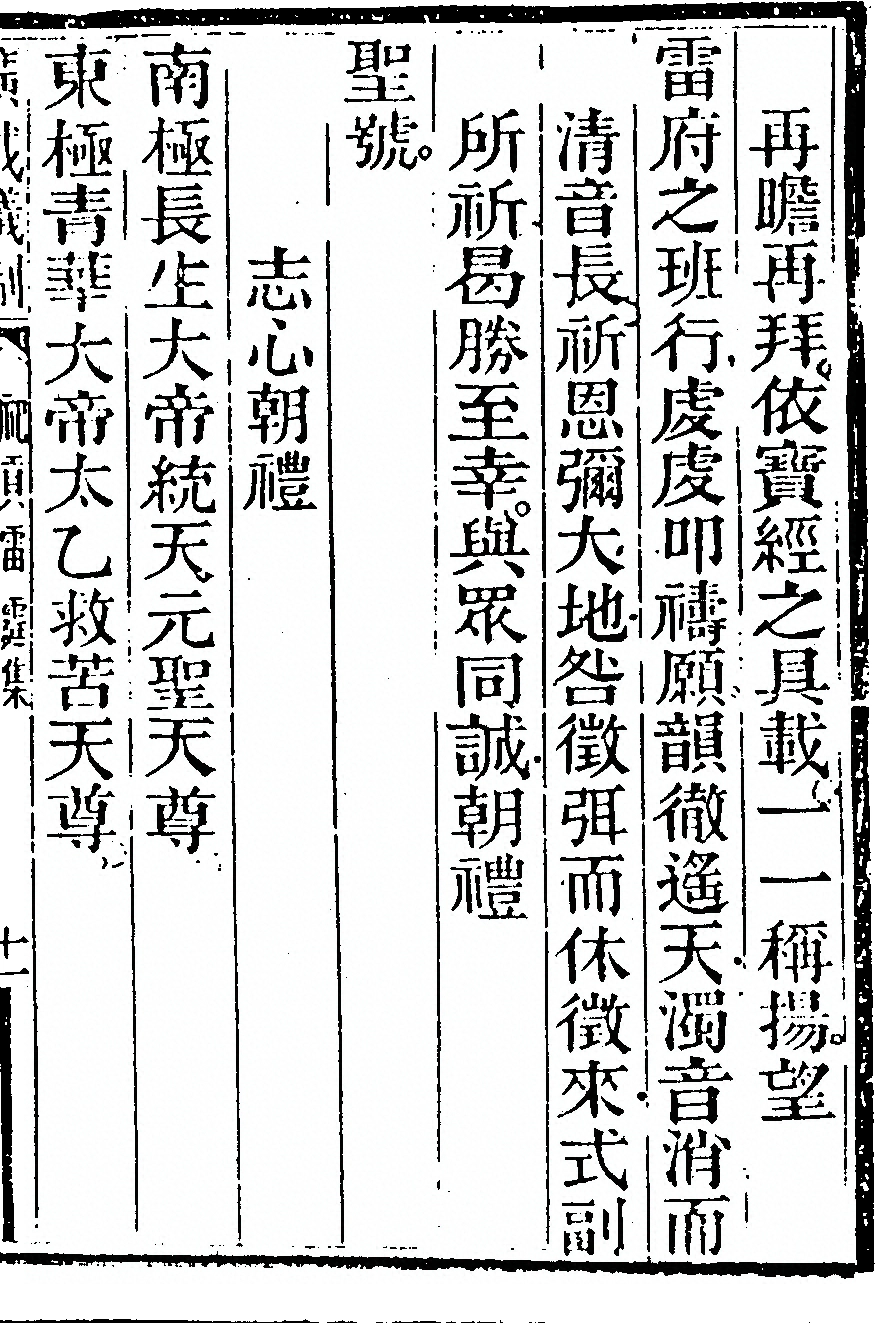 再瞻再拜。依寶經之具載一一稱揚。望
雷府之班行處處叩禱願韻徹遙天濁音消而
清音長祈恩彌大地咎徵弭而休徵來式副
所祈曷勝至幸。與眾同誠朝禮
聖號。
志心朝禮
南極長生大帝統天元聖天尊
東極青華大帝太乙救苦天尊
廣成儀制 雷霆集 十一